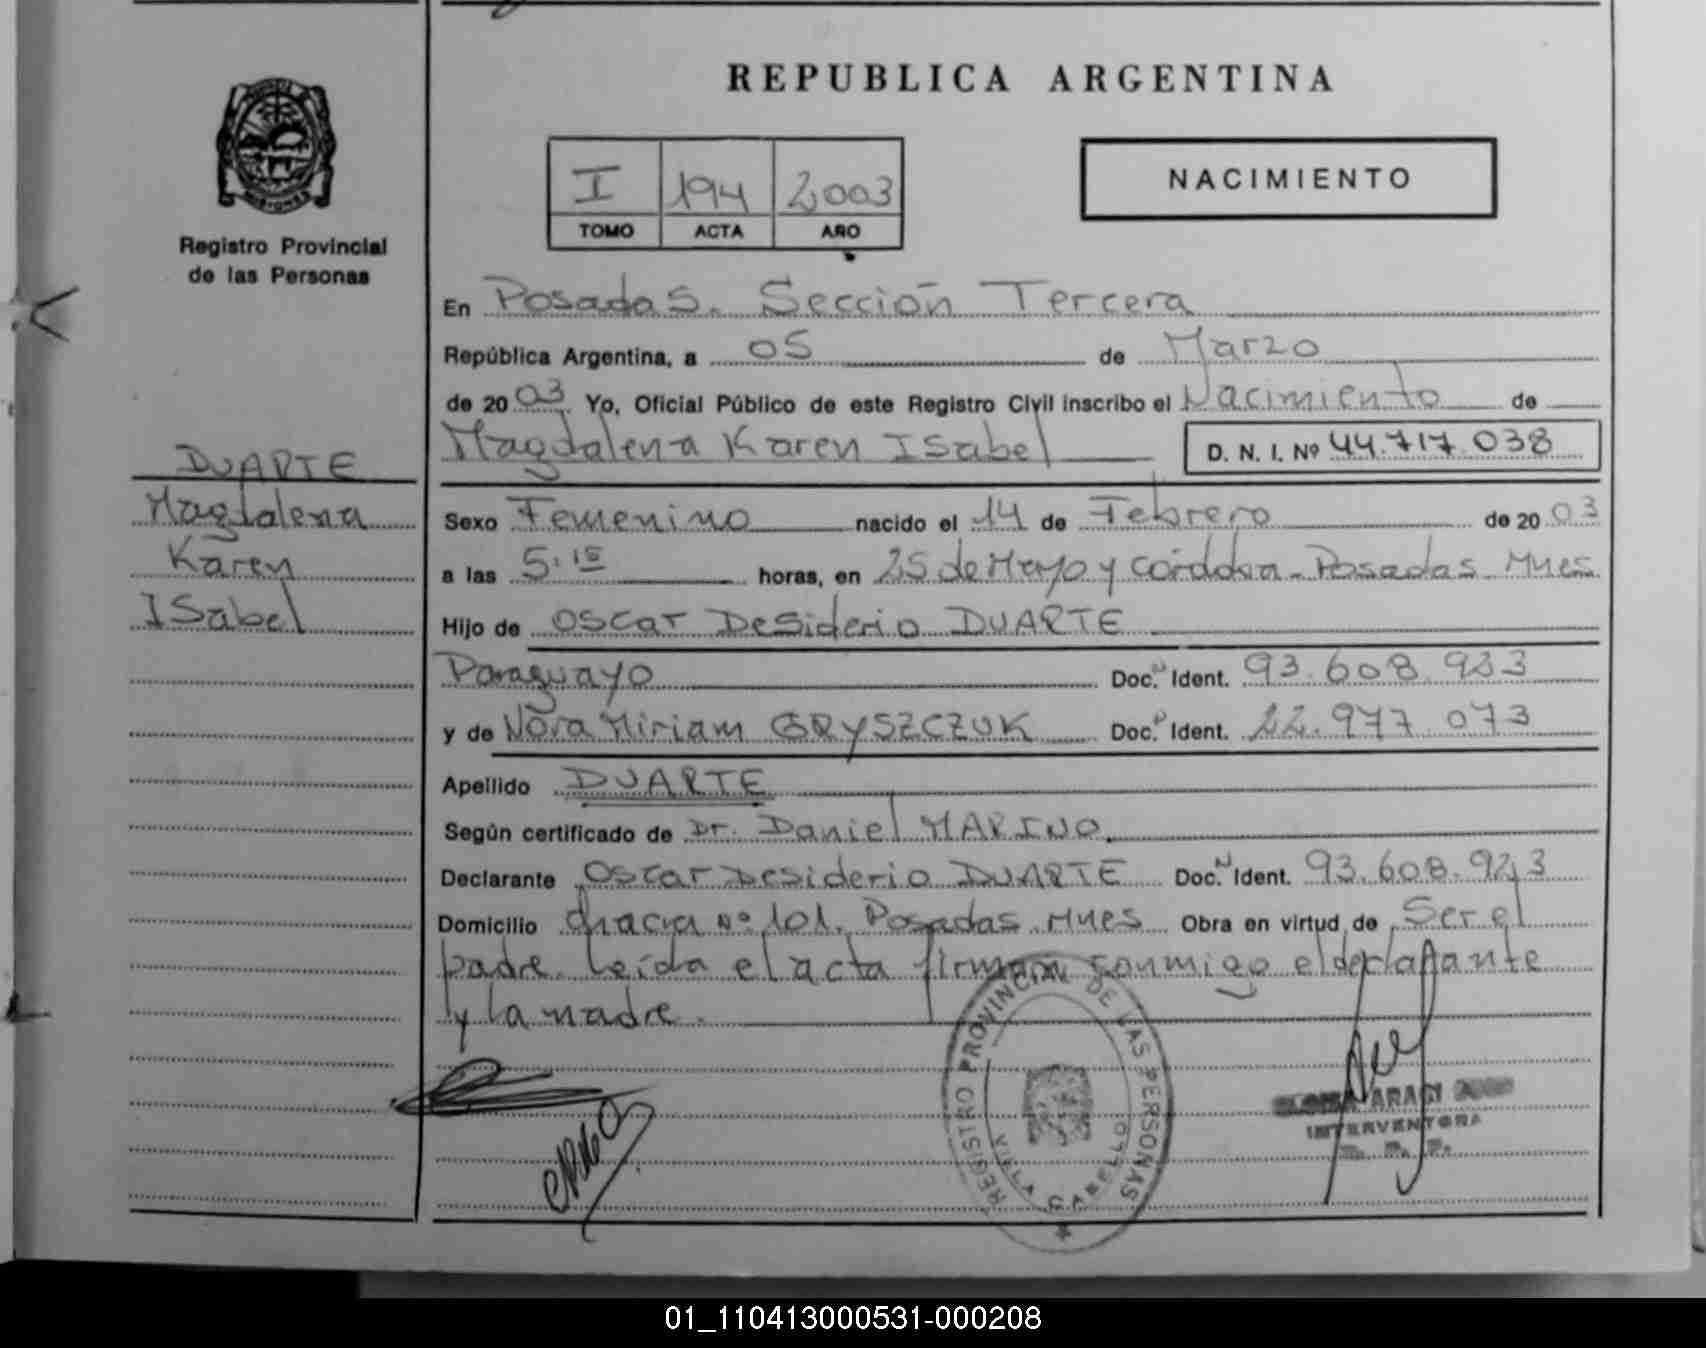 REPUBLICA ARGENTINA
MISIONES
Registro Provincial
de las Personas
I 194 2003
TOMO ACTA AÑO
NACIMIENTO
En Posadas. Sección Tercera
República Argentina, a 05 de Marzo
de 2003 Yo, Oficial Público de este Registro Civil inscribo el Nacimiento de
Magdalena Karen Isabel D. N. I. Nº 44.717.038
DUARTE
Magdalena
Karen
Isabel
Sexo Femenino nacido el 14 de Febrero de 2003
a las 5:15 horas, en 25 de Mayo y Córdova - Posadas Mnes
Hijo de Oscar Desiderio DUARTE
Paraguayo Doc. Ident. 93.608.923
y de Nora Miriam GRYSZCZUK Doc. Ident. 22.977.073
Apellido DUARTE
Según certificado de Dr. Daniel MARINO.
Declarante Oscar Desiderio DUARTE Doc. Ident. 93.608.923
Domicilio chacra Nº 101. Posadas Mnes Obra en virtud de Ser el
padre. Leída el acta firman conmigo el declarante
y la madre.
REGISTRO PROVINCIAL DE LAS PERSONAS
VILLA CABELLO
INTERVENTORA
01_110413000531-000208